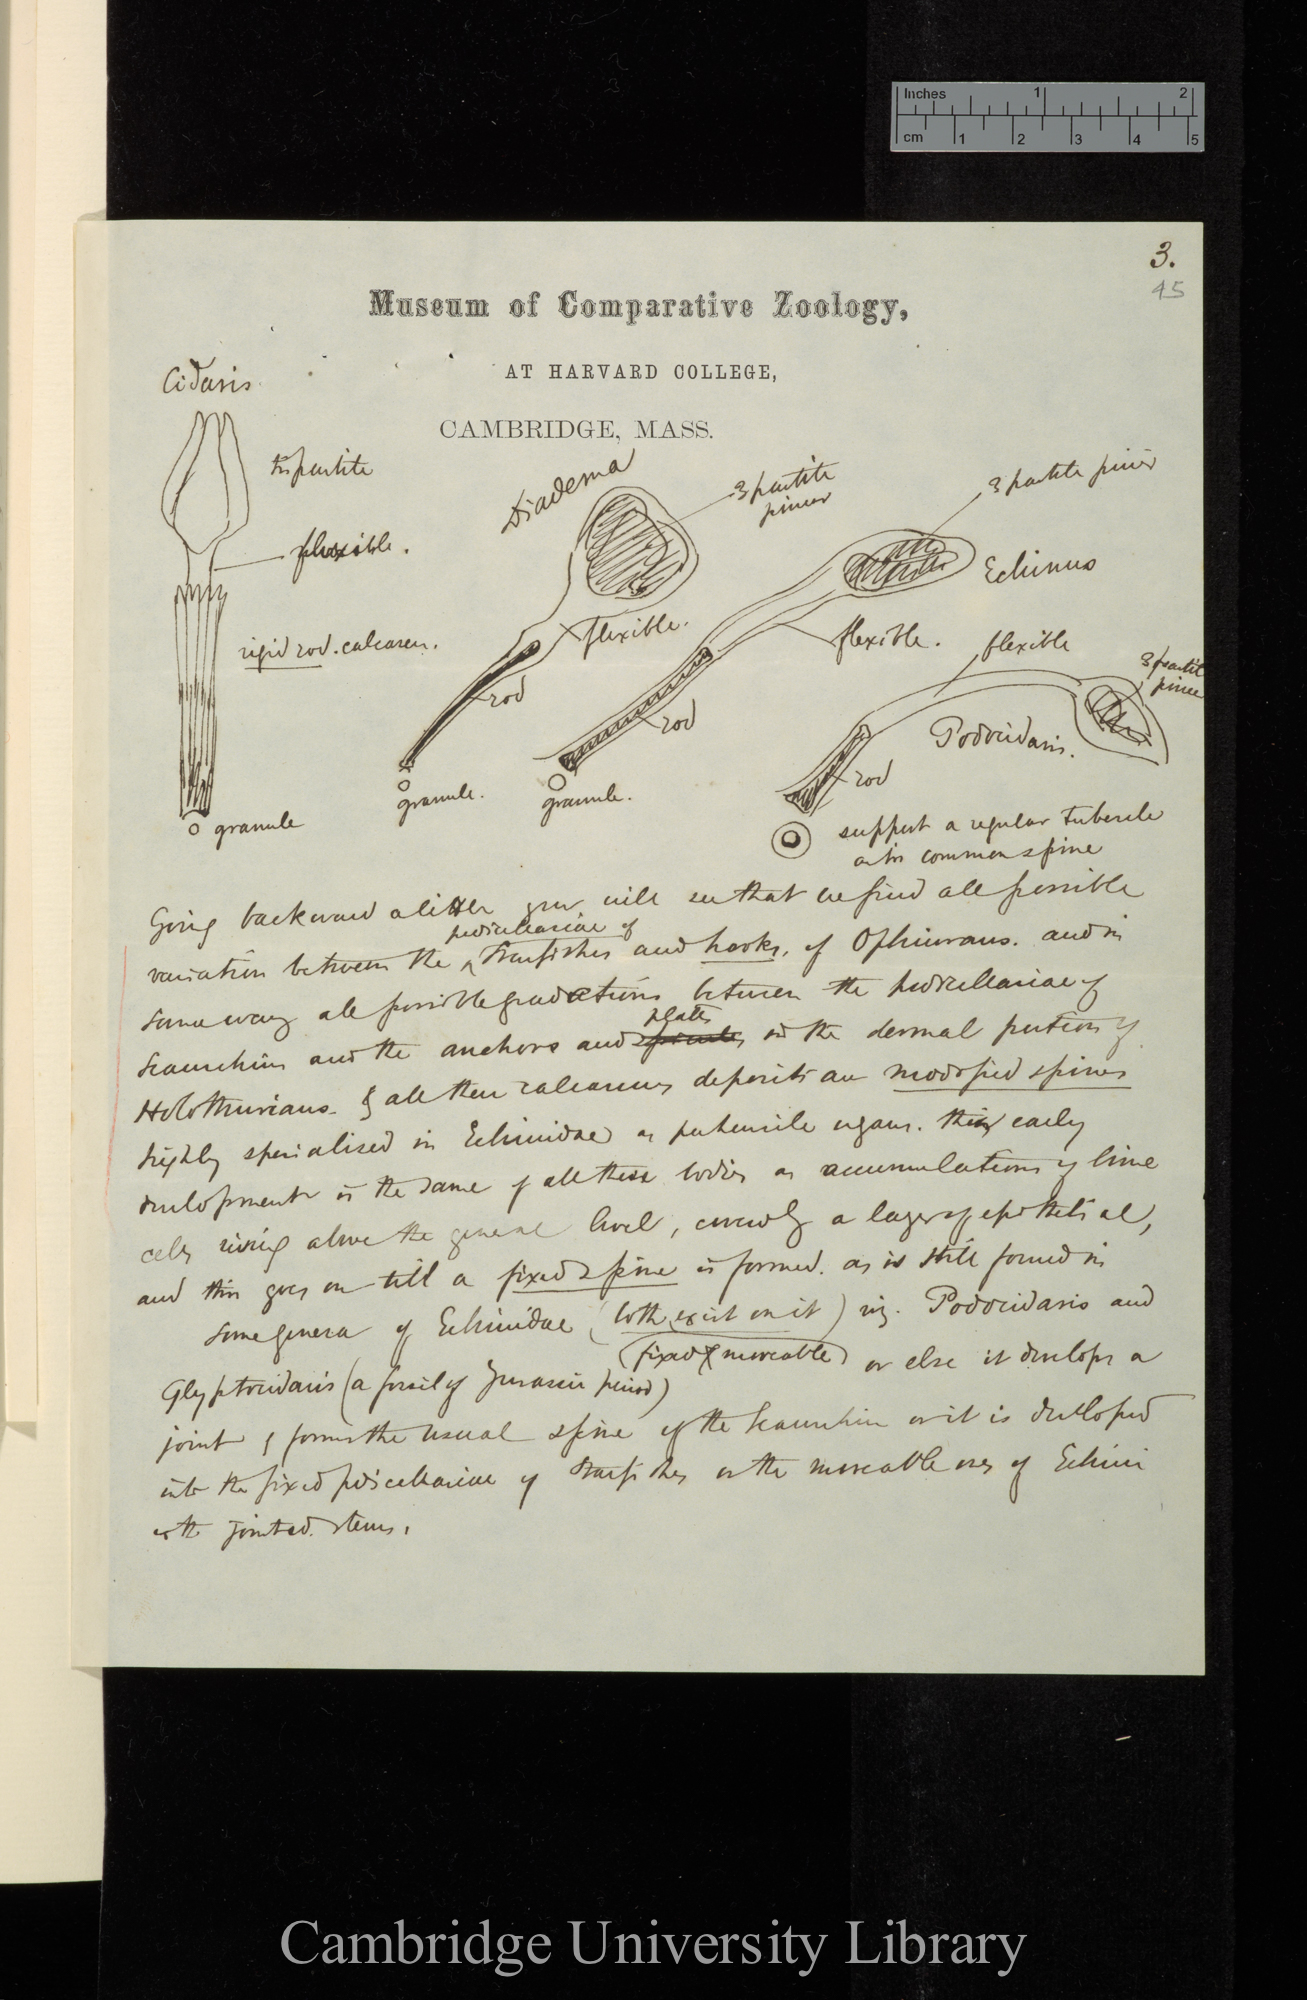 Inches 1 2
cm 1 2 3 4 5
3.
45
Museum of Comparative Zoology,
AT HARVARD COLLEGE,
CAMBRIDGE, MASS.
Cidaris
tripartite
flexible.
rigid rod. calcareu.
granule
Diadema
3 partite
pincer
flexible.
rod
granule.
3 partite pincer
Echinus
flexible.
rod
granule.
flexible
3 partit
pince
Podocidaris.
rod
support a regular tubercle
as in common spine
Going backward a litter you will see that we find all possible
variation between the pedicellariae of Starfishes and hooks, of Ophiurans. and in
same way all possible gradations between the pedicellariae of
Seaurchins and the anchors and plates in the dermal portion of
Holothurians & all then calcareous deposits are modified spines
highly specialised in Echinidae as prehensile organs. their early
development is the same of all these bodies as accumulations of lime
cells rising above the general level, covered by a layer of epithelial,
and this goes on till a fixed spine is formed. as is still found in
some genera of Echinidae (both exist on it) viz. Podocidaris and
(fixed & moveable)
Glyptocidaris (a fossil of Jurassic period) or else it develops a
joint & forms the usual spine of the Seaurchin or it is developed
into the fixed pedicellariae of Starfishes or the moveable ones of Echini
with jointed stems.
Cambridge University Library